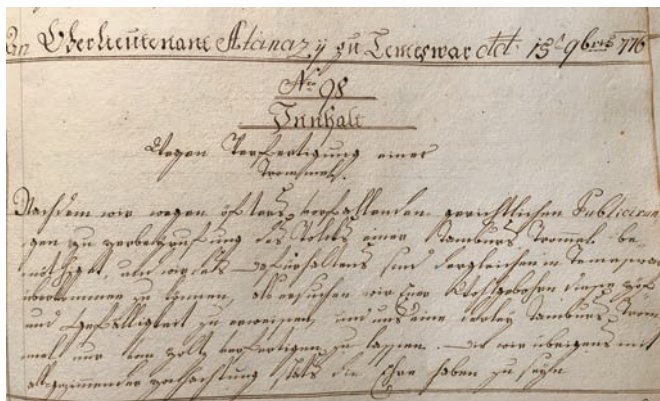 An Oberlieutenant Atanazÿ zu Temeswar ddt. 15t 9bris 776
Nro 98
Innhalt
Wegen Verfertigung einer
Trommel.
Nachdem wir wegen öfters vorfallenden gerichtlichen Publicirun
gen zu des Volks einer Tambours Trommel be-
nöthiget, und wir des Dafürhaltens sind dergleichen in Temeswar
überkommen zu können, als ersuchen wir Euer Wohlgebohrn diese
und Gefälligkeit zu erweisen, und uns eine derley Tambours Trom
mel nur von Holtz verfertigen zu lassen. Die wir übrigens mit
all geziemender Hochachtung stäts die Ehre haben zu seÿn